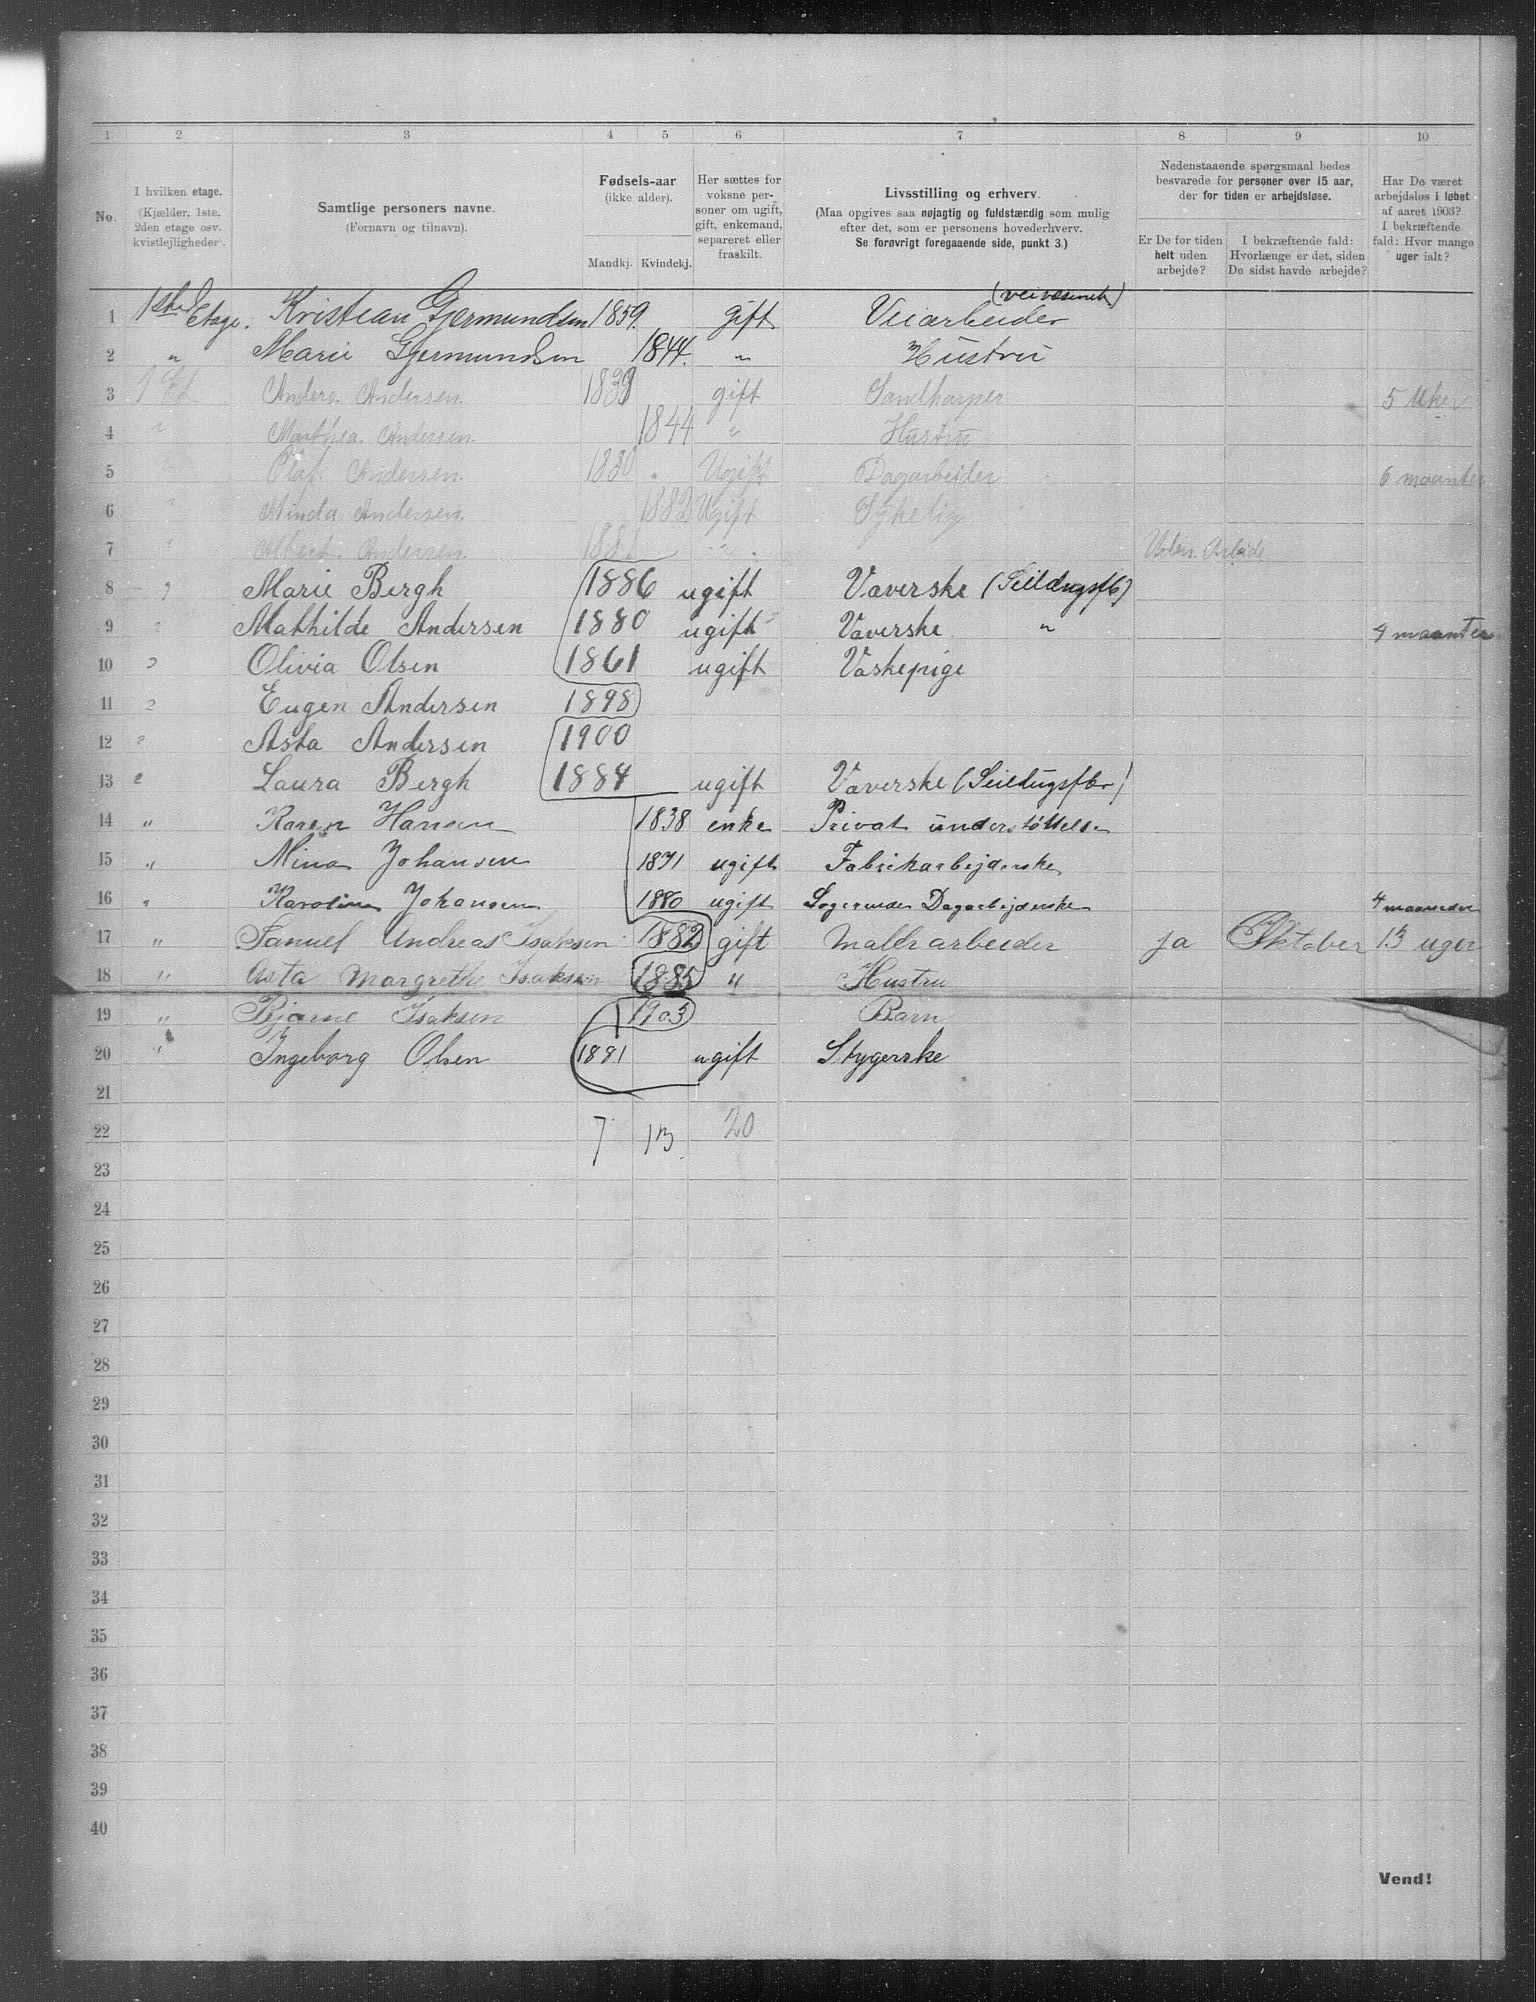 1 2 3 4 5 6 7 8 9 10
No.
I hvilken etage.
(Kjælder, 1ste, 2den etage osv. kvistlejligheder).
Samtlige personers navne.
(Fornavn og tilnavn).
Fødsels-aar
(ikke alder).
Mandkj. Kvindekj.
Her sættes for voksne personer om ugift, gift, enkemand, separeret eller fraskilt.
Livsstilling og erhverv.
(Maa opgives saa nøjagtig og fuldstærdig som mulig efter det, som er personens hovederhverv.
Se forøvrigt foregaaende side, punkt 3.)
Nedenstaaende spørgsmaal bedes besvarede for personer over 15 aar, der for tiden er arbejdsløse.
Er De for tiden helt uden arbejde?
I bekræftende fald: Hvorlænge er det, siden De sidst havde arbejde?
Har De været arbejdsløs i løbet af aaret 1903? I bekræftende fald: Hvor mange uger ialt?
1 1ste Etage. Kristian Gjermundsen 1859. gift Veiarbeider (veivæsenet)
2 " Marie Gjermundsen 1844. " Hustru
3 1 Et Anders. Andersen. 1839 gift Sandharper 5 Uker
4 " Marthea. Andersen. 1844 " Hustru
5 Olaf. Andersen. 1880 Ugift Dagarbeider 6 maaneder
6 " Minda Andersen. 1882 Ugift Sykelig
7 " Albert. Andersen. " Uden. Arbeide
8 " Marie Bergh 1886 ugift Væverske (Seildugsfb)
9 " Mathilde Andersen 1880 ugift Væverske " 4 maaneder
10 " Olivia Olsen 1861 ugift Vaskepige
11 " Eugen Andersen 1898
12 " Asta Andersen 1900
13 " Laura Bergh 1884 ugift Væverske (Seildugsfbr)
14 " Karen Hansen 1838 enke Privat understøttelse
15 " Mina Johansen 1871 ugift Fabrikarbejderske
16 " Karoline Johansen 1880 ugift Logerende Dagarbejderske 4 maaneder
17 " Samuel Andreas Isaksen 1882 gift Malerarbeider ja Oktober 13 uger
18 " Asta Margrethe Isaksen 1885 " Hustru
19 " Bjarne Isaksen 1903 Barn
20 " Ingeborg Olsen 1881 ugift Strygerske
21
22 7 13 20
23
24
25
26
27
28
29
30
31
32
33
34
35
36
37
38
39
40
Vend!